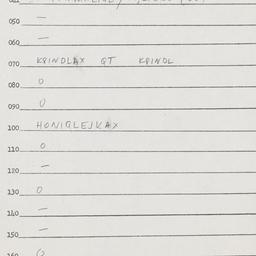 050 —
060 —
070 KRINDLAX GT KRINDL
080 O
090 O
100 HONIGLEJKAX
110 O
120 —
130 O
140 —
150 —
160 O